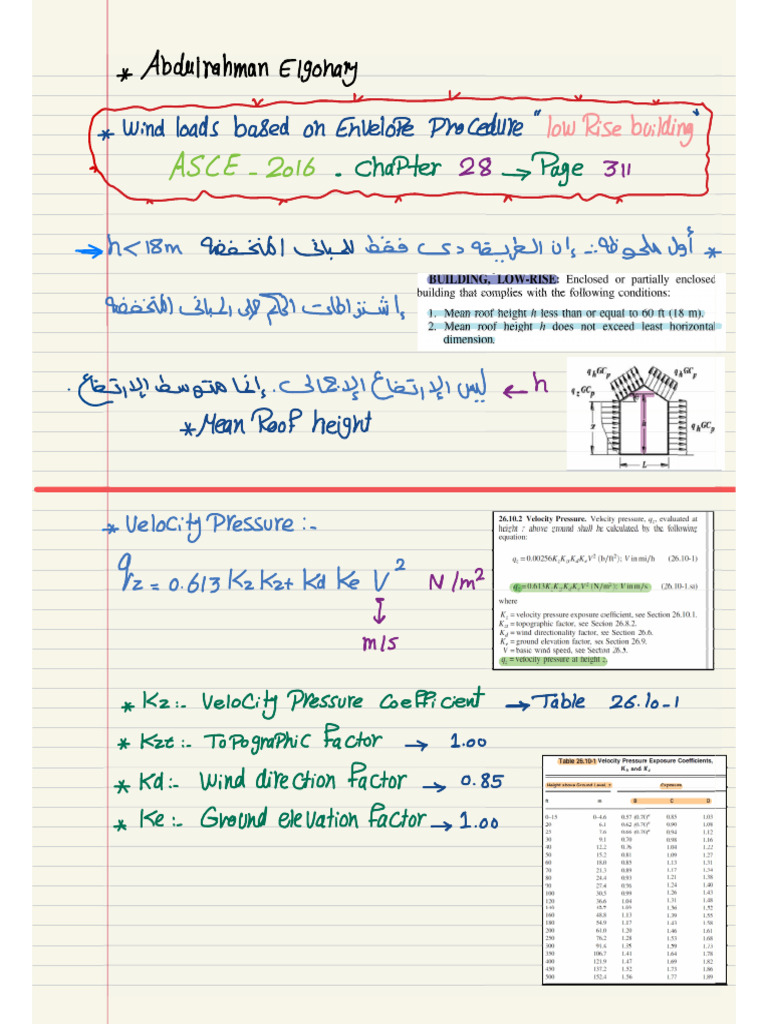 * Abdulrahman Elgohary
* Wind loads based on Envelope Procedure "low Rise building"
ASCE - 2016 . Chapter 28 → Page 311
* أول ملحوظة :- إن الطريقه دى فقط للمبانى المنخفضة h < 18m ←
إشتراطات الحكم على المبانى المنخفضة
BUILDING, LOW-RISE: Enclosed or partially enclosed
building that complies with the following conditions:
1. Mean roof height h less than or equal to 60 ft (18 m).
2. Mean roof height h does not exceed least horizontal
dimension.
h ← ليس الإرتفاع الإجمالى . إنما متوسط الإرتفاع .
* Mean Roof height
qhGCp
qhGCp
qzGCp
qhGCp
z
h
L
* Velocity Pressure :-
qz = 0.613 Kz Kzt Kd Ke V² N/m²
m/s
26.10.2 Velocity Pressure. Velocity pressure, qz, evaluated at
height z above ground shall be calculated by the following
equation:
qz = 0.00256KzKztKdKeV² (lb/ft²); V in mi/h (26.10-1)
qz = 0.613KzKztKdKeV² (N/m²); V in m/s (26.10-1.si)
where
Kz = velocity pressure exposure coefficient, see Section 26.10.1.
Kzt = topographic factor, see Section 26.8.2.
Kd = wind directionality factor, see Section 26.6.
Ke = ground elevation factor, see Section 26.9.
V = basic wind speed, see Section 26.5.
qz = velocity pressure at height z.
* Kz :- Velocity Pressure Coefficient → Table 26.10-1
* Kzt :- Topographic Factor → 1.00
* Kd :- Wind direction Factor → 0.85
* Ke :- Ground elevation Factor → 1.00
Table 26.10-1 Velocity Pressure Exposure Coefficients,
Kh and Kz
Height above Ground Level, z Exposure
ft m B C D
0–15 0–4.6 0.57 (0.70)a 0.85 1.03
20 6.1 0.62 (0.70)a 0.90 1.08
25 7.6 0.66 (0.70)a 0.94 1.12
30 9.1 0.70 0.98 1.16
40 12.2 0.76 1.04 1.22
50 15.2 0.81 1.09 1.27
60 18.0 0.85 1.13 1.31
70 21.3 0.89 1.17 1.34
80 24.4 0.93 1.21 1.38
90 27.4 0.96 1.24 1.40
100 30.5 0.99 1.26 1.43
120 36.6 1.04 1.31 1.48
140 1.09 1.36 1.52
160 48.8 1.13 1.39 1.55
180 54.9 1.17 1.43 1.58
200 61.0 1.20 1.46 1.61
250 76.2 1.28 1.53 1.68
300 91.4 1.35 1.59 1.73
350 106.7 1.41 1.64 1.78
400 121.9 1.47 1.69 1.82
450 137.2 1.52 1.73 1.86
500 152.4 1.56 1.77 1.89